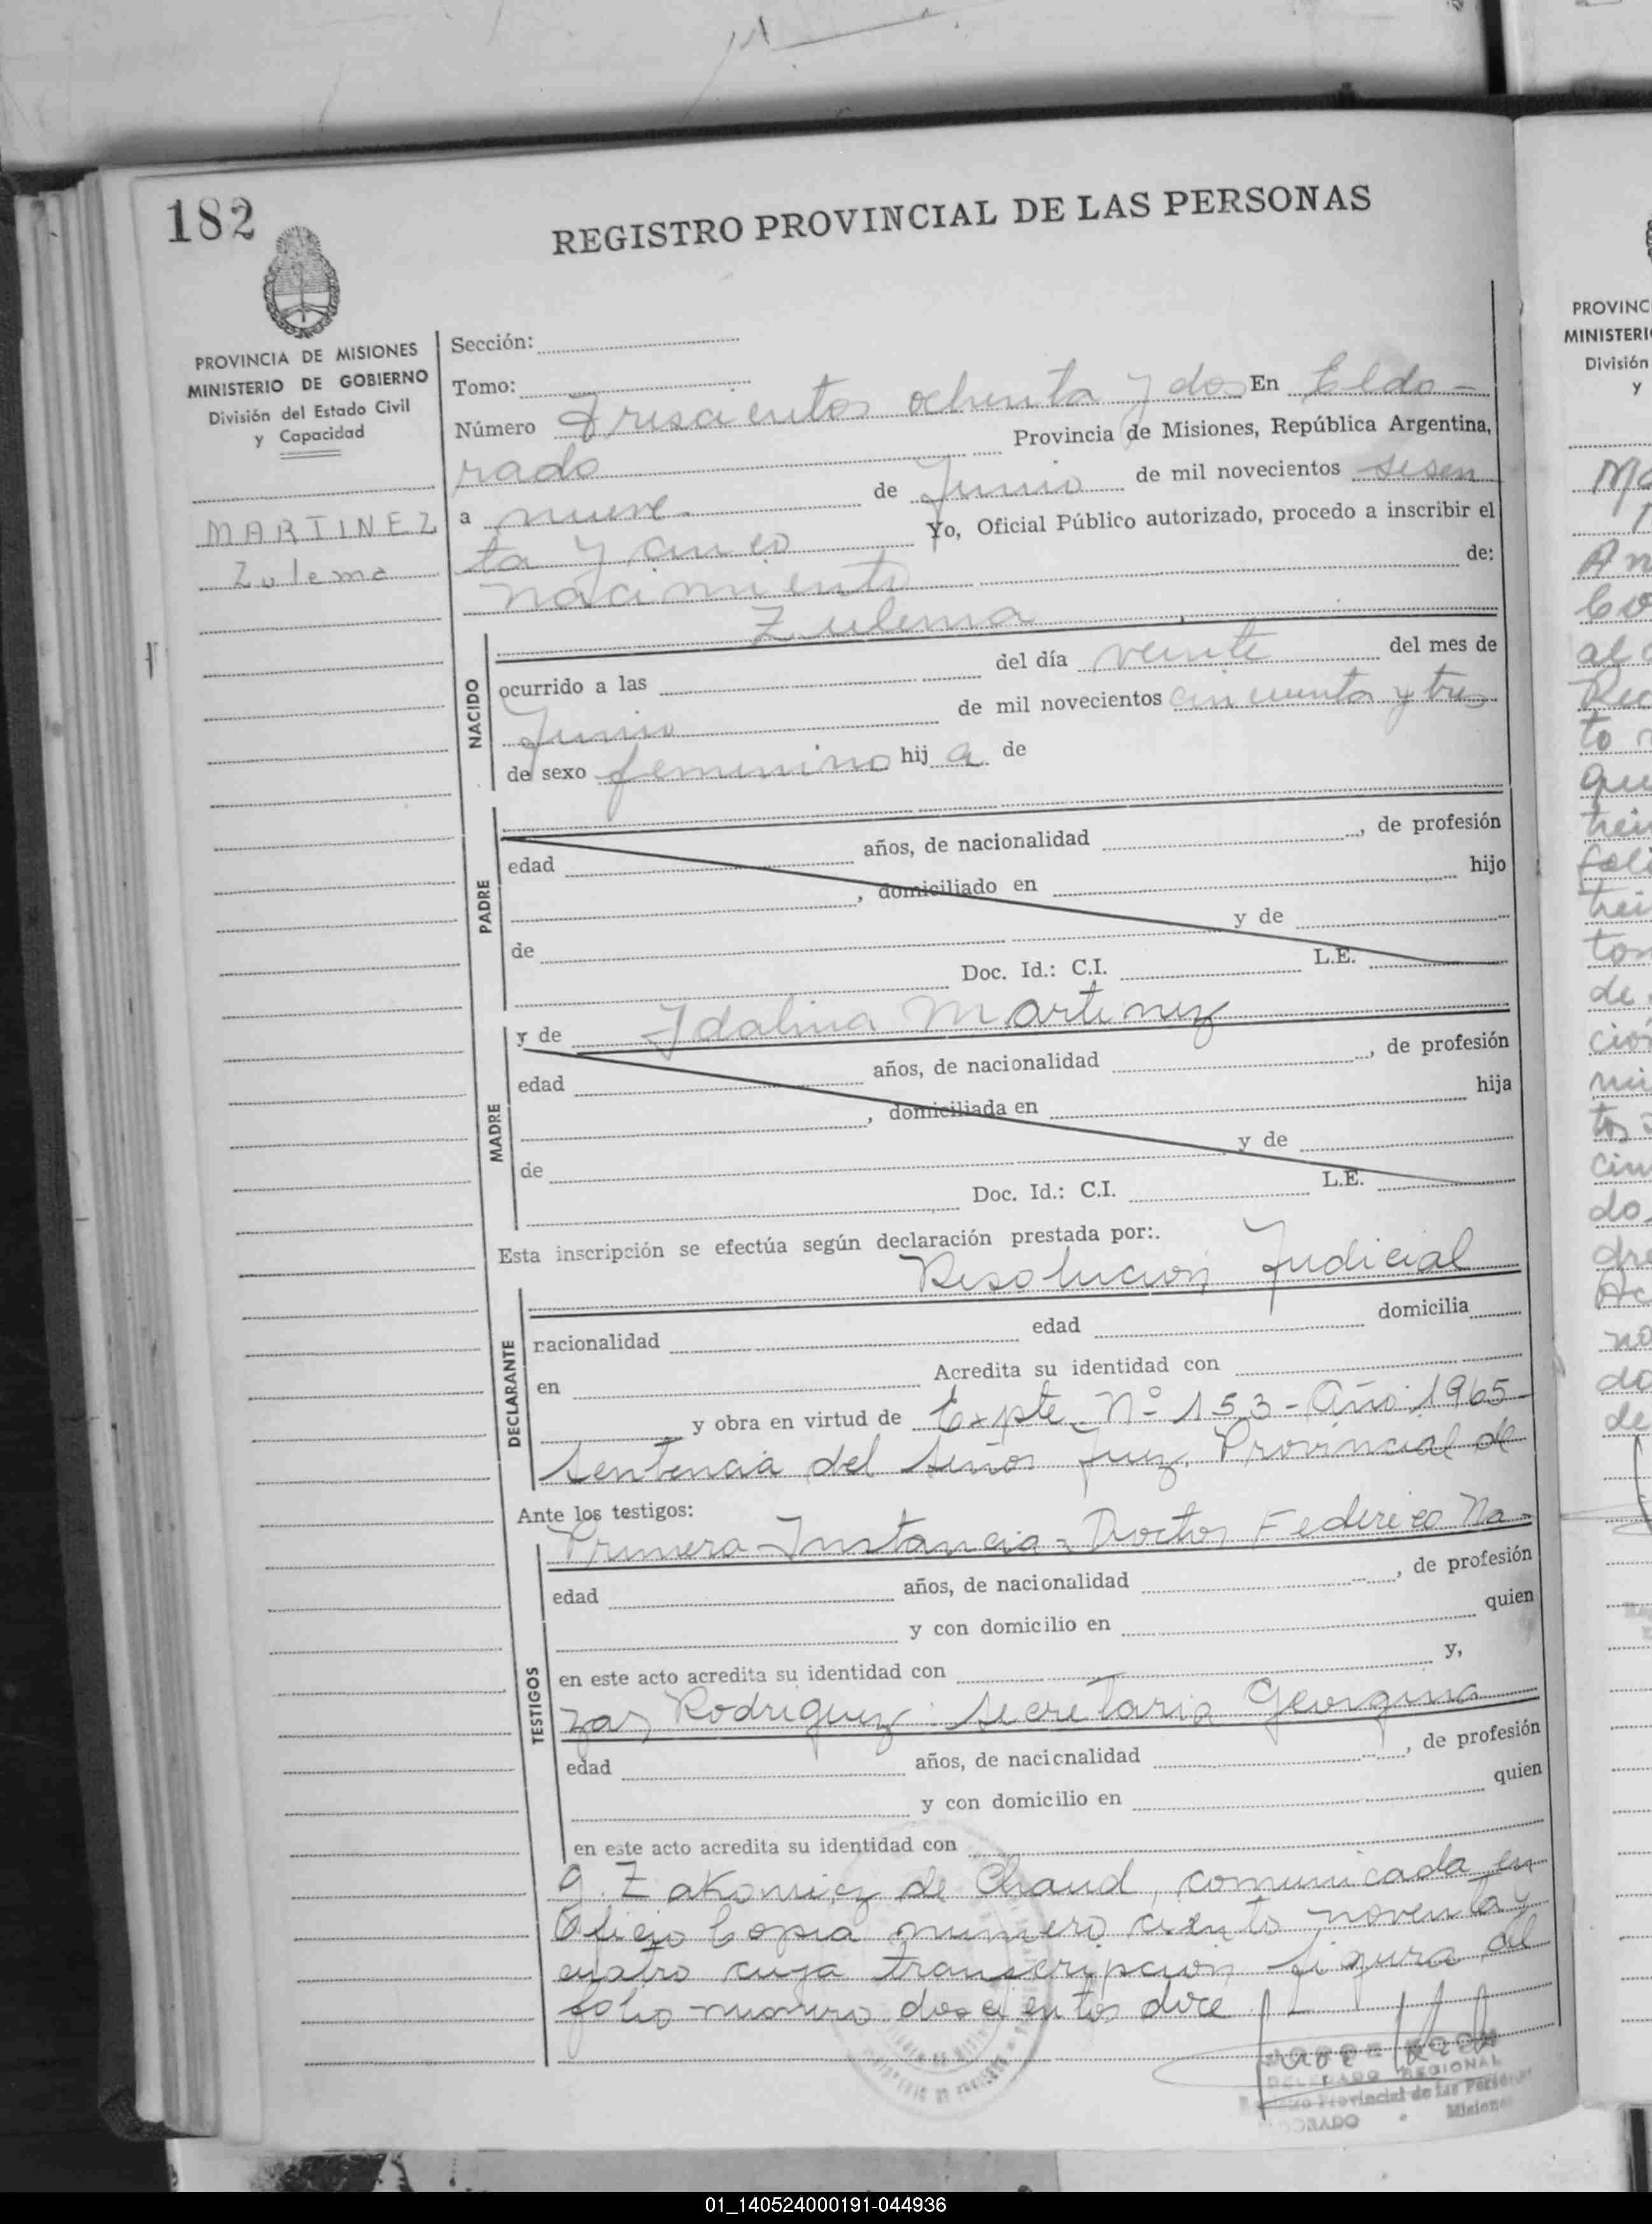 182
REGISTRO PROVINCIAL DE LAS PERSONAS
PROVINCIA DE MISIONES
MINISTERIO DE GOBIERNO
División del Estado Civil
y Capacidad
MARTINEZ
Zulema
Sección:
Tomo:
Número Trescientos ochenta y dos En Eldo-
rado Provincia de Misiones, República Argentina,
a nueve. de Junio de mil novecientos sesen
ta y cinco Yo, Oficial Público autorizado, procedo a inscribir el
nacimiento de:
Zulema
NACIDO
ocurrido a las del día veinte del mes de
Junio de mil novecientos cincuenta y tres
de sexo femenino hij a de
PADRE
edad años, de nacionalidad , de profesión
, domiciliado en hijo
de y de
Doc. Id.: C.I. L.E.
y de Idalina Martinez
MADRE
edad años, de nacionalidad , de profesión
, domiciliada en hija
de y de
Doc. Id.: C.I. L.E.
Esta inscripción se efectúa según declaración prestada por:.
Resolucion Judicial
DECLARANTE
nacionalidad edad domicilia
en Acredita su identidad con
y obra en virtud de Expte. Nº 153 - Año 1965
Sentencia del Señor Juez Provincial de
Ante los testigos:
Primera Instancia - Doctor Federico Na-
TESTIGOS
edad años, de nacionalidad , de profesión
y con domicilio en quien
en este acto acredita su identidad con y,
zar Rodriguez secretaria Georgina
edad años, de nacionalidad , de profesión
y con domicilio en quien
en este acto acredita su identidad con
G. Zakowicz de Chaud, comunicada en
Oficio Copia numero ciento noventa y
cuatro cuya transcripcion figura al
folio numero doscientos doce
DELEGADO REGIONAL
Registro Provincial de las Personas
ELDORADO - Misiones
PROVINC
MINISTERI
División
y
01_140524000191-044936